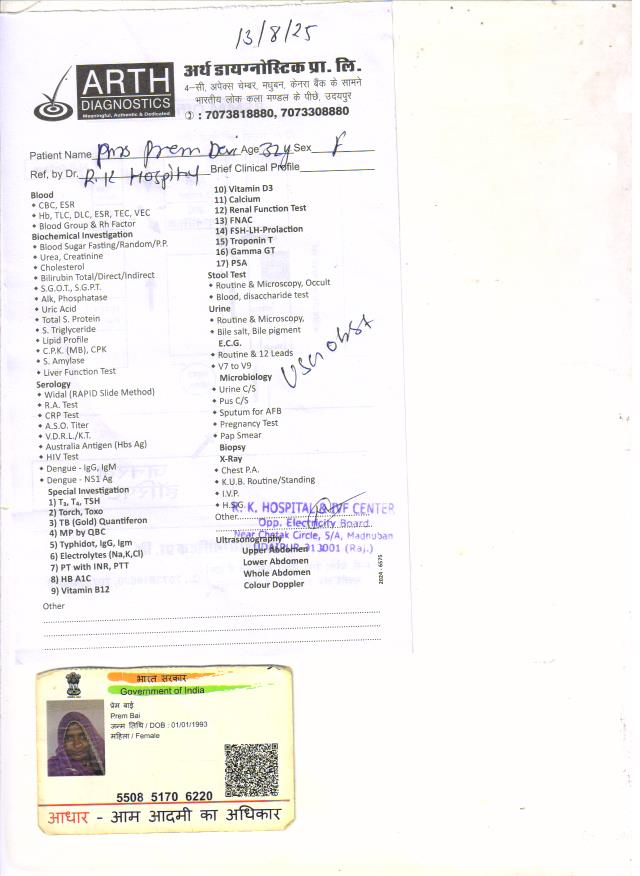 13/8/25
ARTH
DIAGNOSTICS
Meaningful, Authentic & Dedicated
अर्थ डायग्नोस्टिक प्रा. लि.
4-सी, अपेक्स चेम्बर, मधुबन, केनरा बैंक के सामने
भारतीय लोक कला मण्डल के पीछे, उदयपुर
✆ : 7073818880, 7073308880
Patient Name Mrs Prem Devi Age 32y Sex F
Ref, by Dr. R.K Hospity Brief Clinical Profile
Blood
CBC, ESR
Hb, TLC, DLC, ESR, TEC, VEC
Blood Group & Rh Factor
Biochemical Investigation
Blood Sugar Fasting/Random/P.P.
Urea, Creatinine
Cholesterol
Bilirubin Total/Direct/Indirect
S.G.O.T., S.G.P.T.
Alk, Phosphatase
Uric Acid
Total S. Protein
S. Triglyceride
Lipid Profile
C.P.K. (MB), CPK
S. Amylase
Liver Function Test
Serology
Widal (RAPID Slide Method)
R.A. Test
CRP Test
A.S.O. Titer
V.D.R.L./K.T.
Australia Antigen (Hbs Ag)
HIV Test
Dengue - IgG, IgM
Dengue - NS1 Ag
Special Investigation
1) T₃, T₄, TSH
2) Torch, Toxo
3) TB (Gold) Quantiferon
4) MP by QBC
5) Typhidot, IgG, Igm
6) Electrolytes (Na,K,Cl)
7) PT with INR, PTT
8) HB A1C
9) Vitamin B12
Other
10) Vitamin D3
11) Calcium
12) Renal Function Test
13) FNAC
14) FSH-LH-Prolaction
15) Troponin T
16) Gamma GT
17) PSA
Stool Test
Routine & Microscopy, Occult
Blood, disaccharide test
Urine
Routine & Microscopy,
Bile salt, Bile pigment
E.C.G.
Routine & 12 Leads
V7 to V9
USG obst
Microbiology
Urine C/S
Pus C/S
Sputum for AFB
Pregnancy Test
Pap Smear
Biopsy
X-Ray
Chest P.A.
K.U.B. Routine/Standing
I.V.P.
H.S.G.
Other
R. K. HOSPITAL & IVF CENTER
Opp. Electricity Board,
Near Chetak Circle, 5/A, Madhuban
UDAIPUR-313001 (Raj.)
Ultrasonography
Upper Abdomen
Lower Abdomen
Whole Abdomen
Colour Doppler
2024 - 6575
भारत सरकार
Government of India
प्रेम बाई
Prem Bai
जन्म तिथि / DOB : 01/01/1993
महिला / Female
5508 5170 6220
आधार - आम आदमी का अधिकार